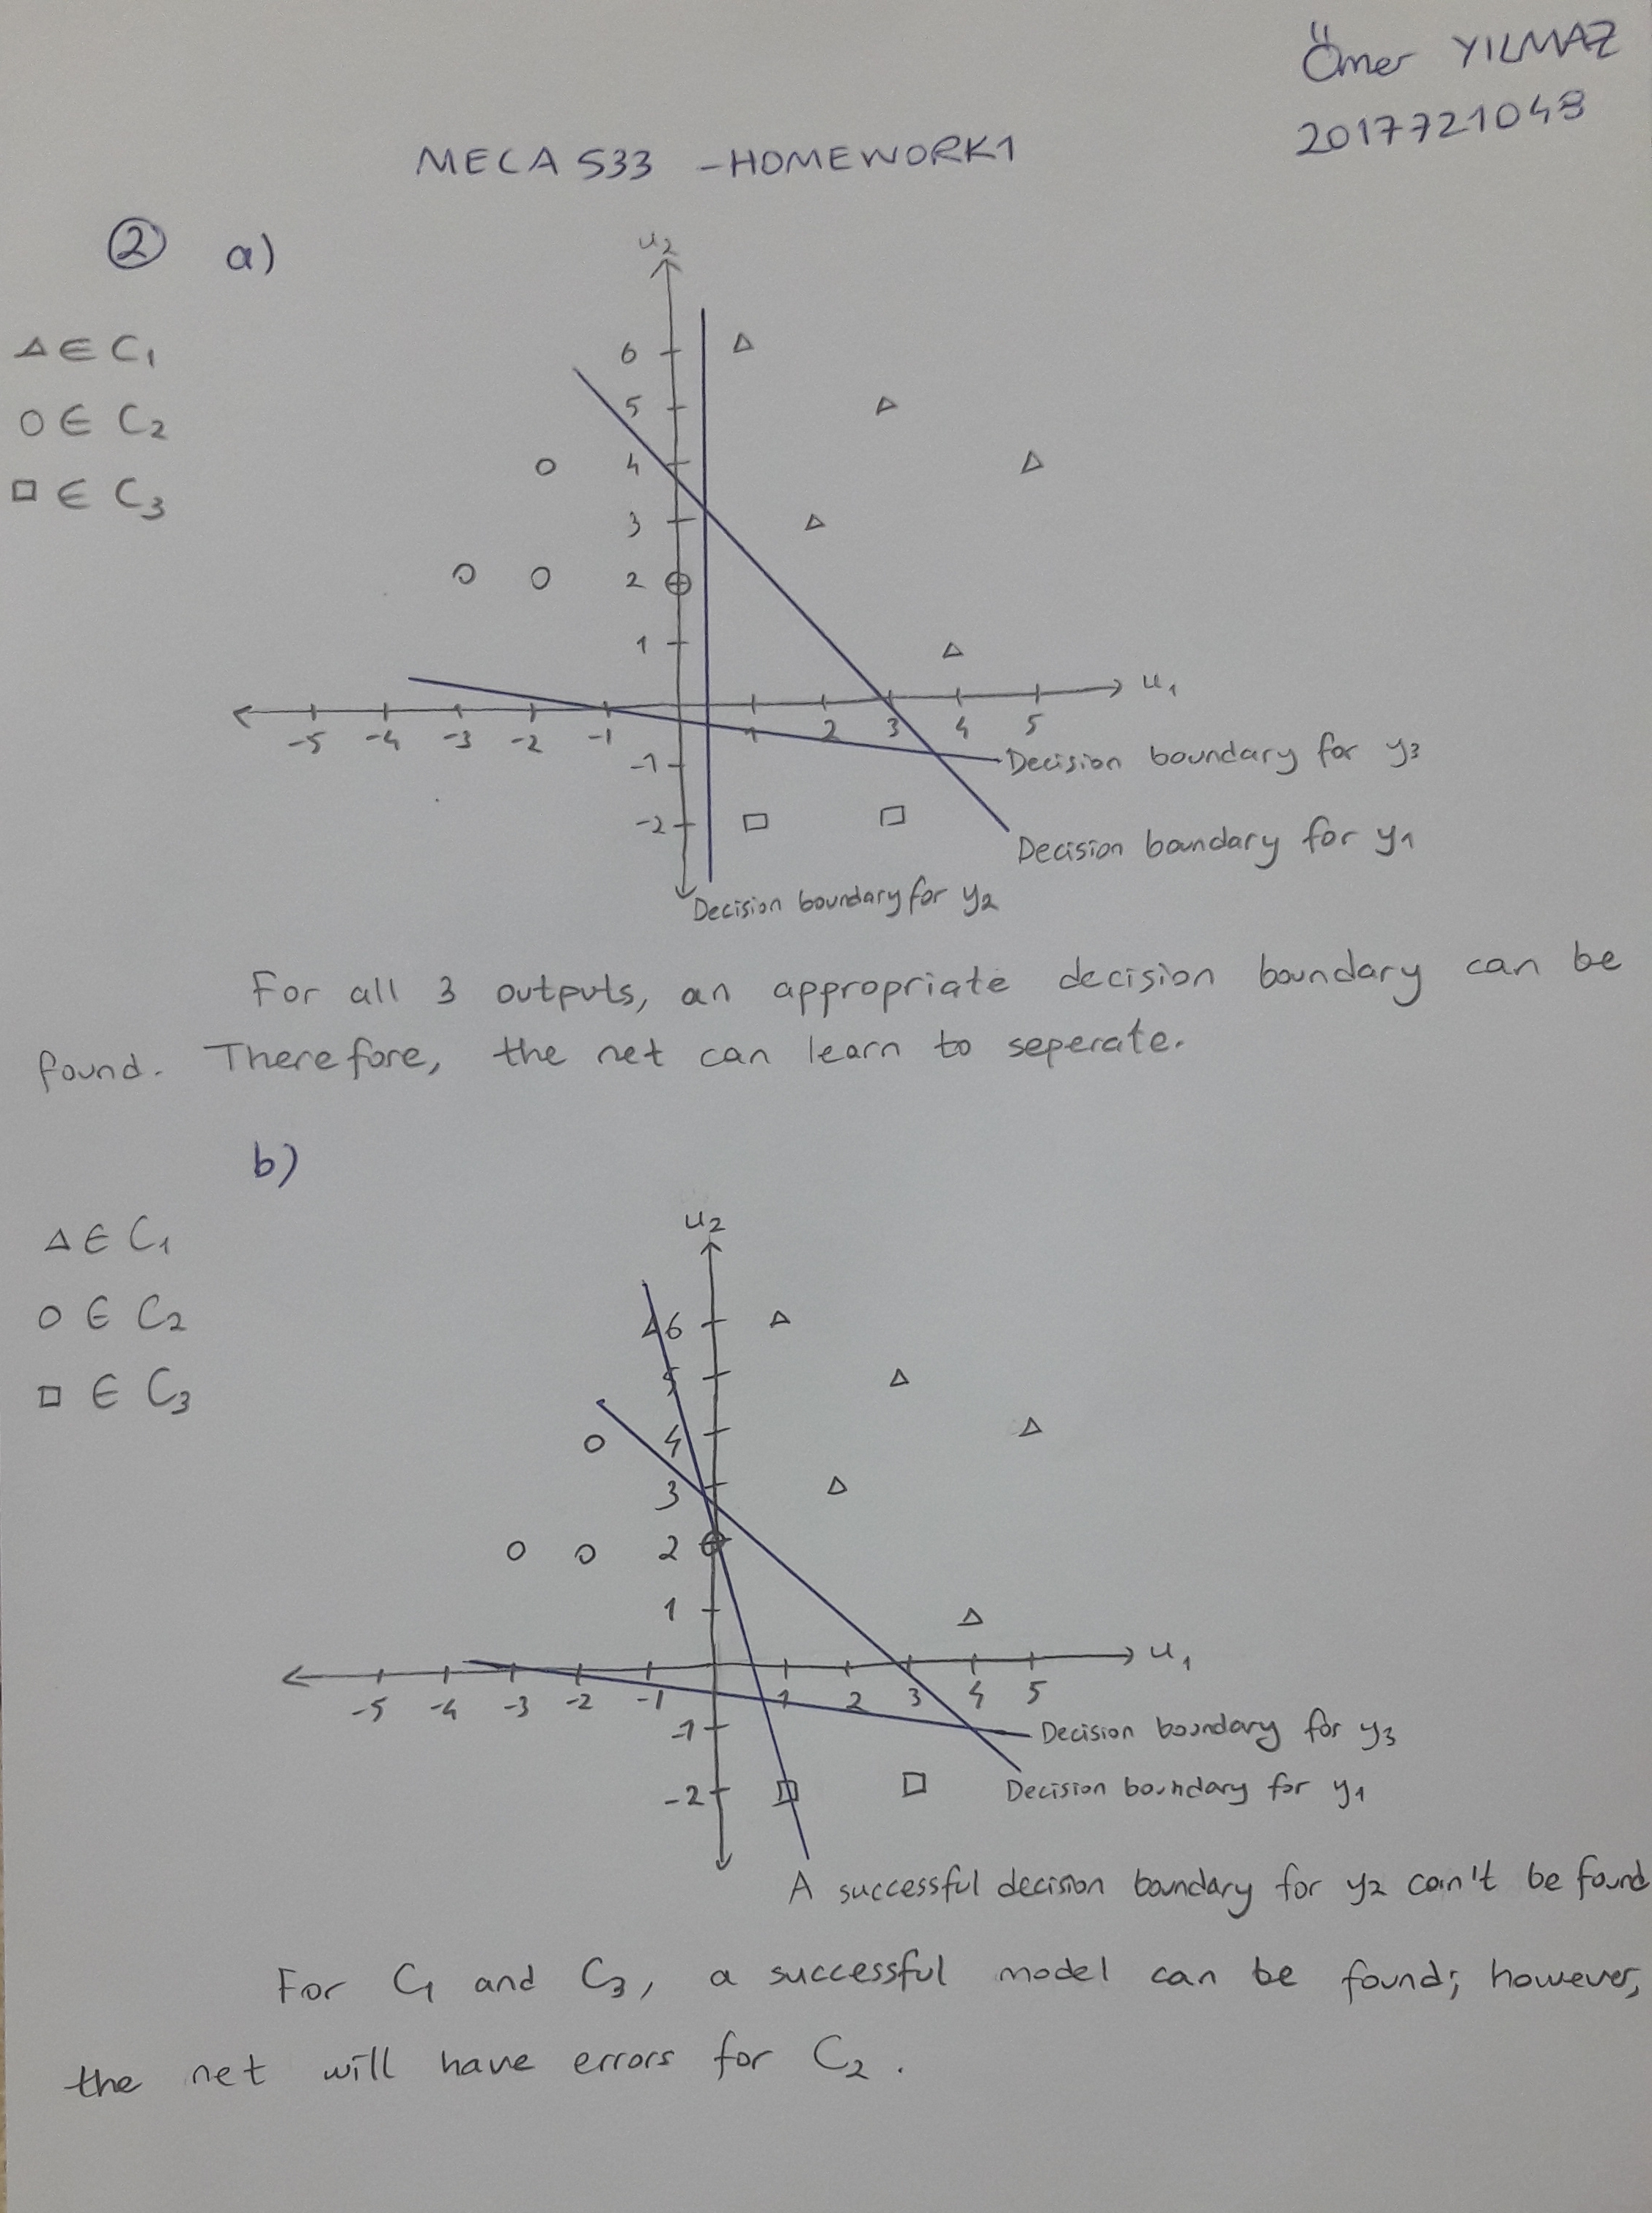 Ömer YILMAZ
2017721048
MECA 533 - HOMEWORK1
② a)
△ ∈ C₁
○ ∈ C₂
□ ∈ C₃
u₂
6
5
4
3
2
1
-5 -4 -3 -2 -1 1 2 3 4 5 u₁
-1
-2
Decision boundary for y₃
Decision boundary for y₁
Decision boundary for y₂
For all 3 outputs, an appropriate decision boundary can be
found. Therefore, the net can learn to seperate.
b)
△ ∈ C₁
○ ∈ C₂
□ ∈ C₃
u₂
6
5
4
3
2
1
-5 -4 -3 -2 -1 1 2 3 4 5 u₁
-1
-2
Decision boundary for y₃
Decision boundary for y₁
A successful decision boundary for y₂ can't be found
For C₁ and C₃, a successful model can be found; however,
the net will have errors for C₂.